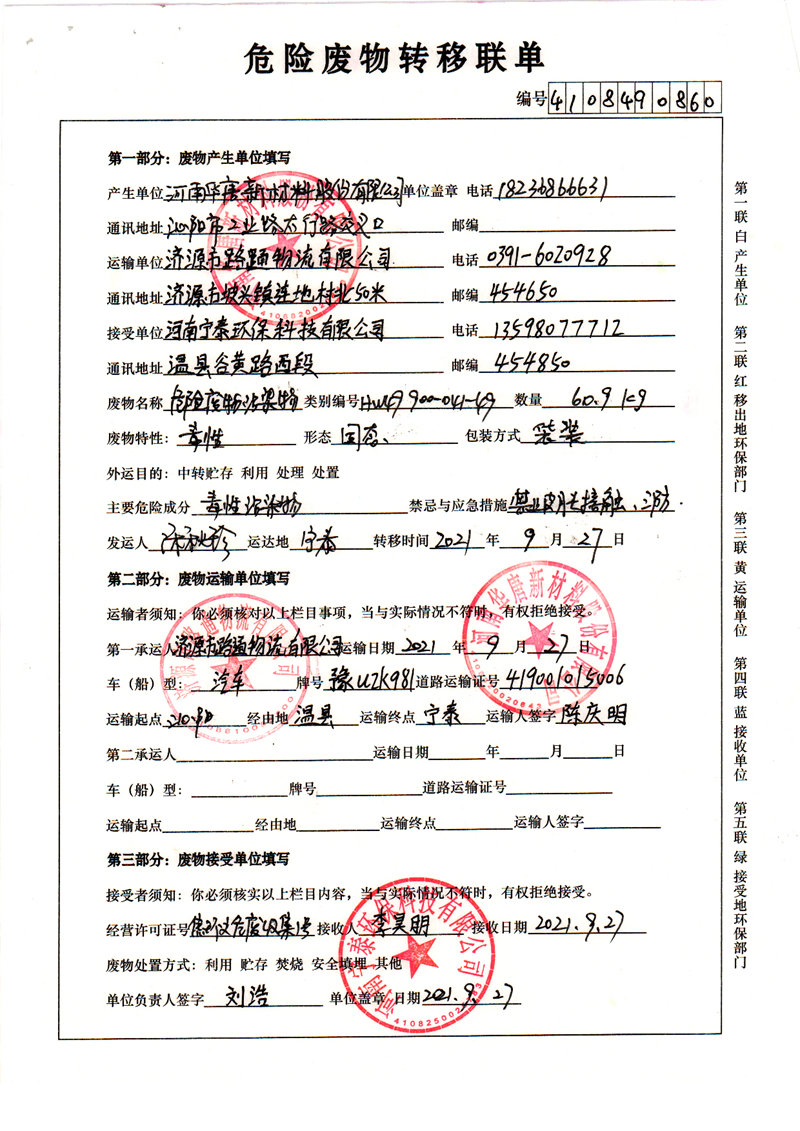 危险废物转移联单
编号 4108490860
第一部分：废物产生单位填写
产生单位 河南华唐新材料股份有限公司 单位盖章 电话 18236866631
通讯地址 沁阳市工业路太行路交叉口 邮编
运输单位 济源市路通物流有限公司 电话 0391-6020928
通讯地址 济源市坡头镇连地村北50米 邮编 454650
接受单位 河南宁泰环保科技有限公司 电话 13598077712
通讯地址 温县谷黄路西段 邮编 454850
废物名称 危险废物沾染物 类别编号 HW49 900-041-49 数量 60.9 kg
废物特性：毒性 形态 固态、 包装方式 袋装
外运目的：中转贮存 利用 处理 处置
主要危险成分 毒性沾染物 禁忌与应急措施 禁止皮肤接触、三防
发运人 运达地 宁泰 转移时间 2021 年 9 月 27 日
第二部分：废物运输单位填写
运输者须知：你必须核对以上栏目事项，当与实际情况不符时，有权拒绝接受。
第一承运人 济源市路通物流有限公司 运输日期 2021 年 9 月 27 日
车（船）型：汽车 牌号 豫UZK981 道路运输证号 419001015006
运输起点 沁阳 经由地 温县 运输终点 宁泰 运输人签字 陈庆明
第二承运人 运输日期 年 月 日
车（船）型： 牌号 道路运输证号
运输起点 经由地 运输终点 运输人签字
第三部分：废物接受单位填写
接受者须知：你必须核实以上栏目内容，当与实际情况不符时，有权拒绝接受。
经营许可证号 接收人 李昊明 接收日期 2021.9.27
废物处置方式：利用 贮存 焚烧 安全填埋 其他
单位负责人签字 刘浩 单位盖章 日期 2021.9.27
第一联 白 产生单位 第二联 红 移出地环保部门 第三联 黄 运输单位 第四联 蓝 接收单位 第五联 绿 接受地环保部门
河南华唐新材料股份有限公司
济源市路通物流有限公司
河南华唐新材料股份有限公司
河南宁泰环保科技有限公司